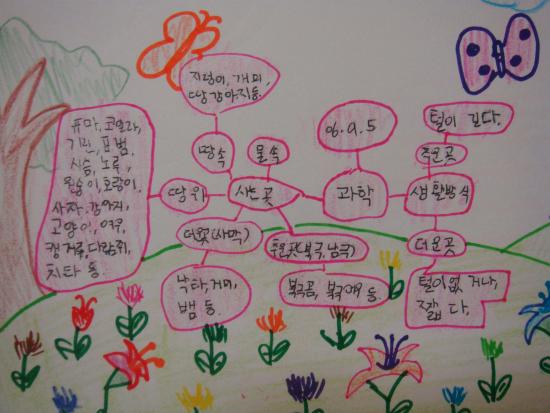 지렁이, 개미,
땅강아지등.
땅속
물속
퓨마, 코알라,
기린, 표범,
사슴, 노루,
원숭이, 호랑이,
사자, 강아지,
고양이, 여우,
캥거루, 다람쥐,
치타 등
땅위
사는 곳
더운곳(사막)
낙타, 거미,
뱀 등.
추운곳(북극, 남극)
북극곰, 북극여우 등.
과학
06. 9. 5
생활방식
추운곳
털이 길다.
더운곳
털이 없거나,
짧다.